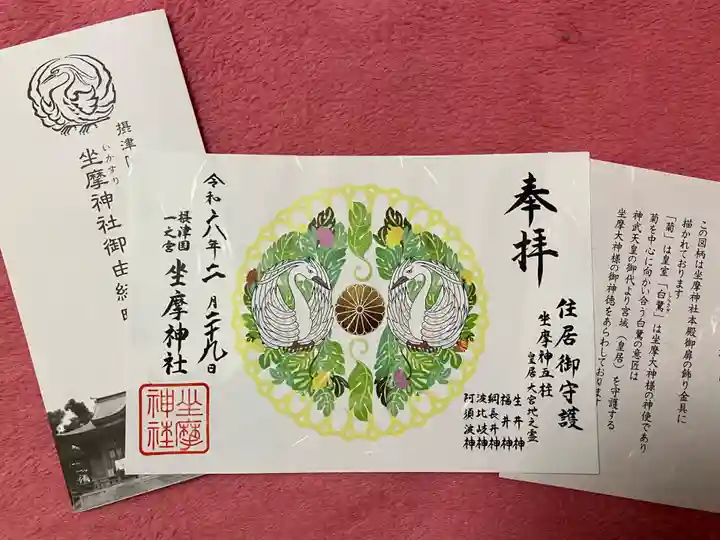 この図柄は坐摩神社本殿御扉の飾り金具に
描かれております
「菊」は皇室「白鷺」は坐摩大神様の神使であり
しらさぎ
菊を中心に向かい合う白鷺の意匠は
神武天皇の御代より宮城（皇居）を守護する
坐摩大神様の御神徳をあらわしております
奉拝
住居御守護
坐摩神五柱
皇居大宮地之霊
生井神
福井神
綱長井神
波比岐神
阿須波神
令和六年二月二十九日
摂津国
一之宮
坐摩神社
坐摩
神社
摂津
いかすり
坐摩神社御由緒